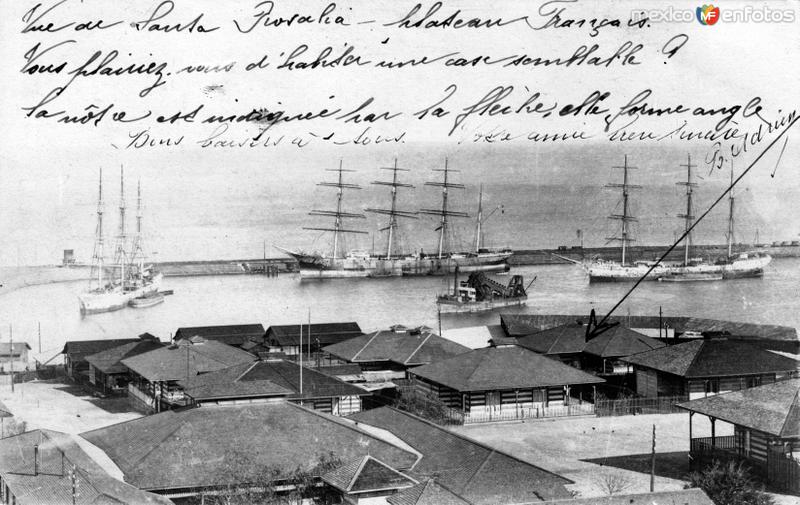 mexico en fotos
Vue de Santa Rosalia - plateau Français.
Vous plairiez-vous d'habiter une case semblable ?
la nôtre est indiquée par la flèche, elle forme angle
Bons baisers à tous. Votre amie bien sincère
Adrien